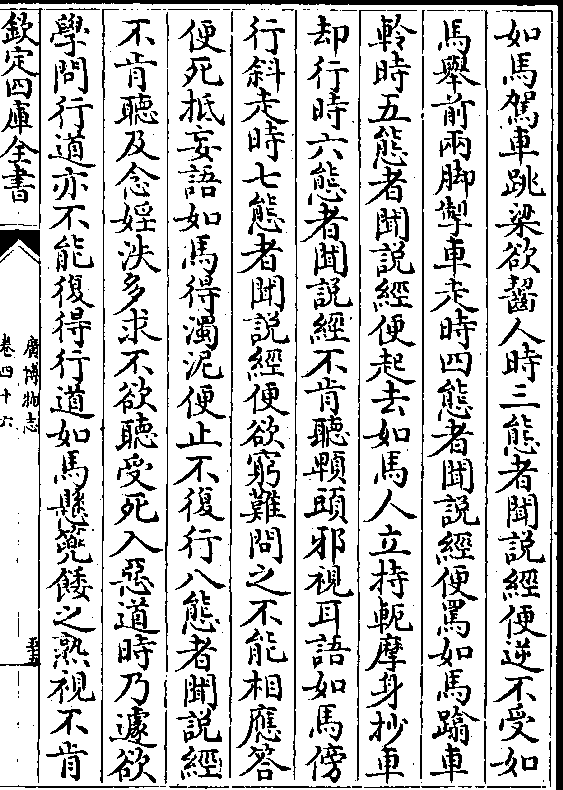 如馬駕車跳梁欲齧人時三態者聞説經便逆不受如
馬舉前兩脚掣車走時四態者聞説經便罵如馬踰車
軨時五態者聞説經便起去如馬人立持軛摩身抄車
却行時六態者聞説經不肯聽顊頭邪視耳語如馬傍
行斜走時七態者聞説經便欲窮難問之不能相應答
便死抵妄語如馬得濁泥便止不復行八態者聞説經
不肯聽及念婬泆多求不欲聽受死入惡道時乃遽欲
學問行道亦不能復得行道如馬懸篼餧之熟視不肯
欽定四庫全書
廣博物志
卷四十六